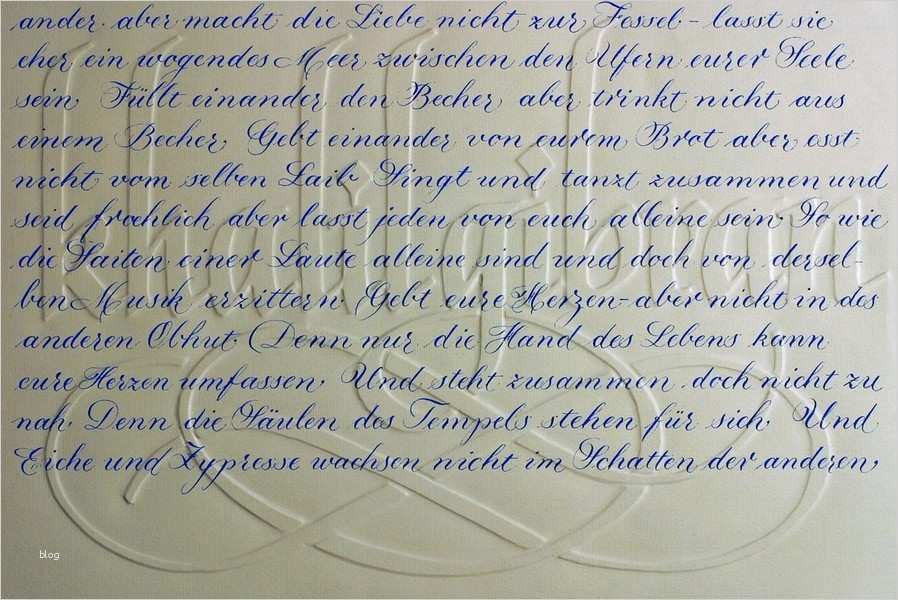 ander aber macht die Liebe nicht zur Fessel - lasst sie
eher ein wogendes Meer zwischen den Ufern eurer Seele
sein. Füllt einander den Becher, aber trinkt nicht aus
einem Becher. Gebt einander von eurem Brot aber esst
nicht vom selben Laib. Singt und tanzt zusammen und
seid froehlich aber lasst jeden von euch alleine sein. So wie
die Saiten einer Laute alleine sind und doch von dersel-
ben Musik erzittern. Gebt eure Herzen - aber nicht in des
anderen Obhut. Denn nur die Hand des Lebens kann
eure Herzen umfassen. Und steht zusammen doch nicht zu
nah. Denn die Säulen des Tempels stehen für sich. Und
Eiche und Zypresse wachsen nicht im Schatten der anderen,
khalil gibran
blog